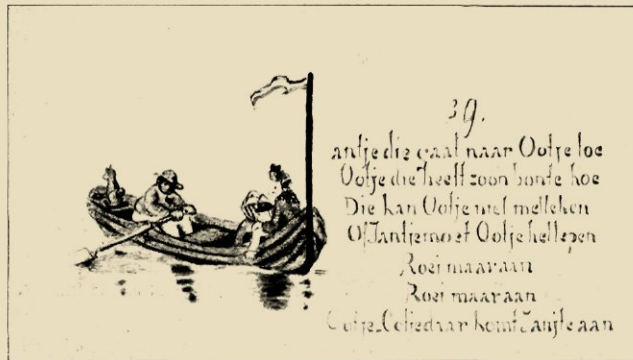 39.
antje die gaat naar Ootje toe
Ootje die heeft zoon bonte koe
Die kan Ootje niet melleken
Of Jantje moet Ootje hellepen
Roei maar aan
Roei maar aan
Ootje Ootje daar komt Jantje aan